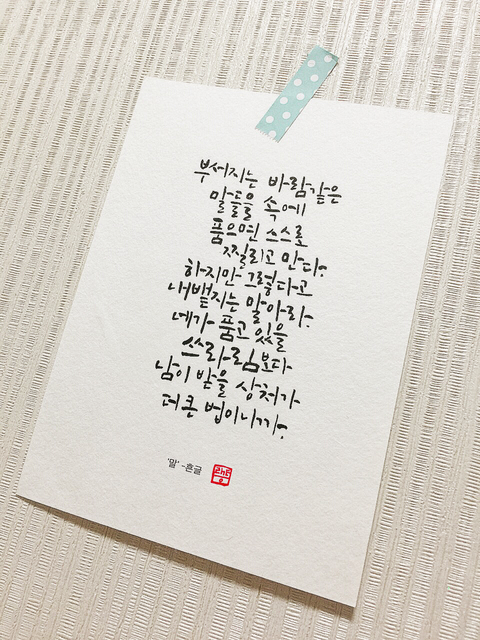 부서지는 바람같은
말들을 속에
품으면 스스로
찔리고 만다.
하지만 그렇다고
내뱉지는 말아라.
네가 품고 있을
쓰라림보다
남이 받을 상처가
더 큰 법이니까.
'말' -흔글